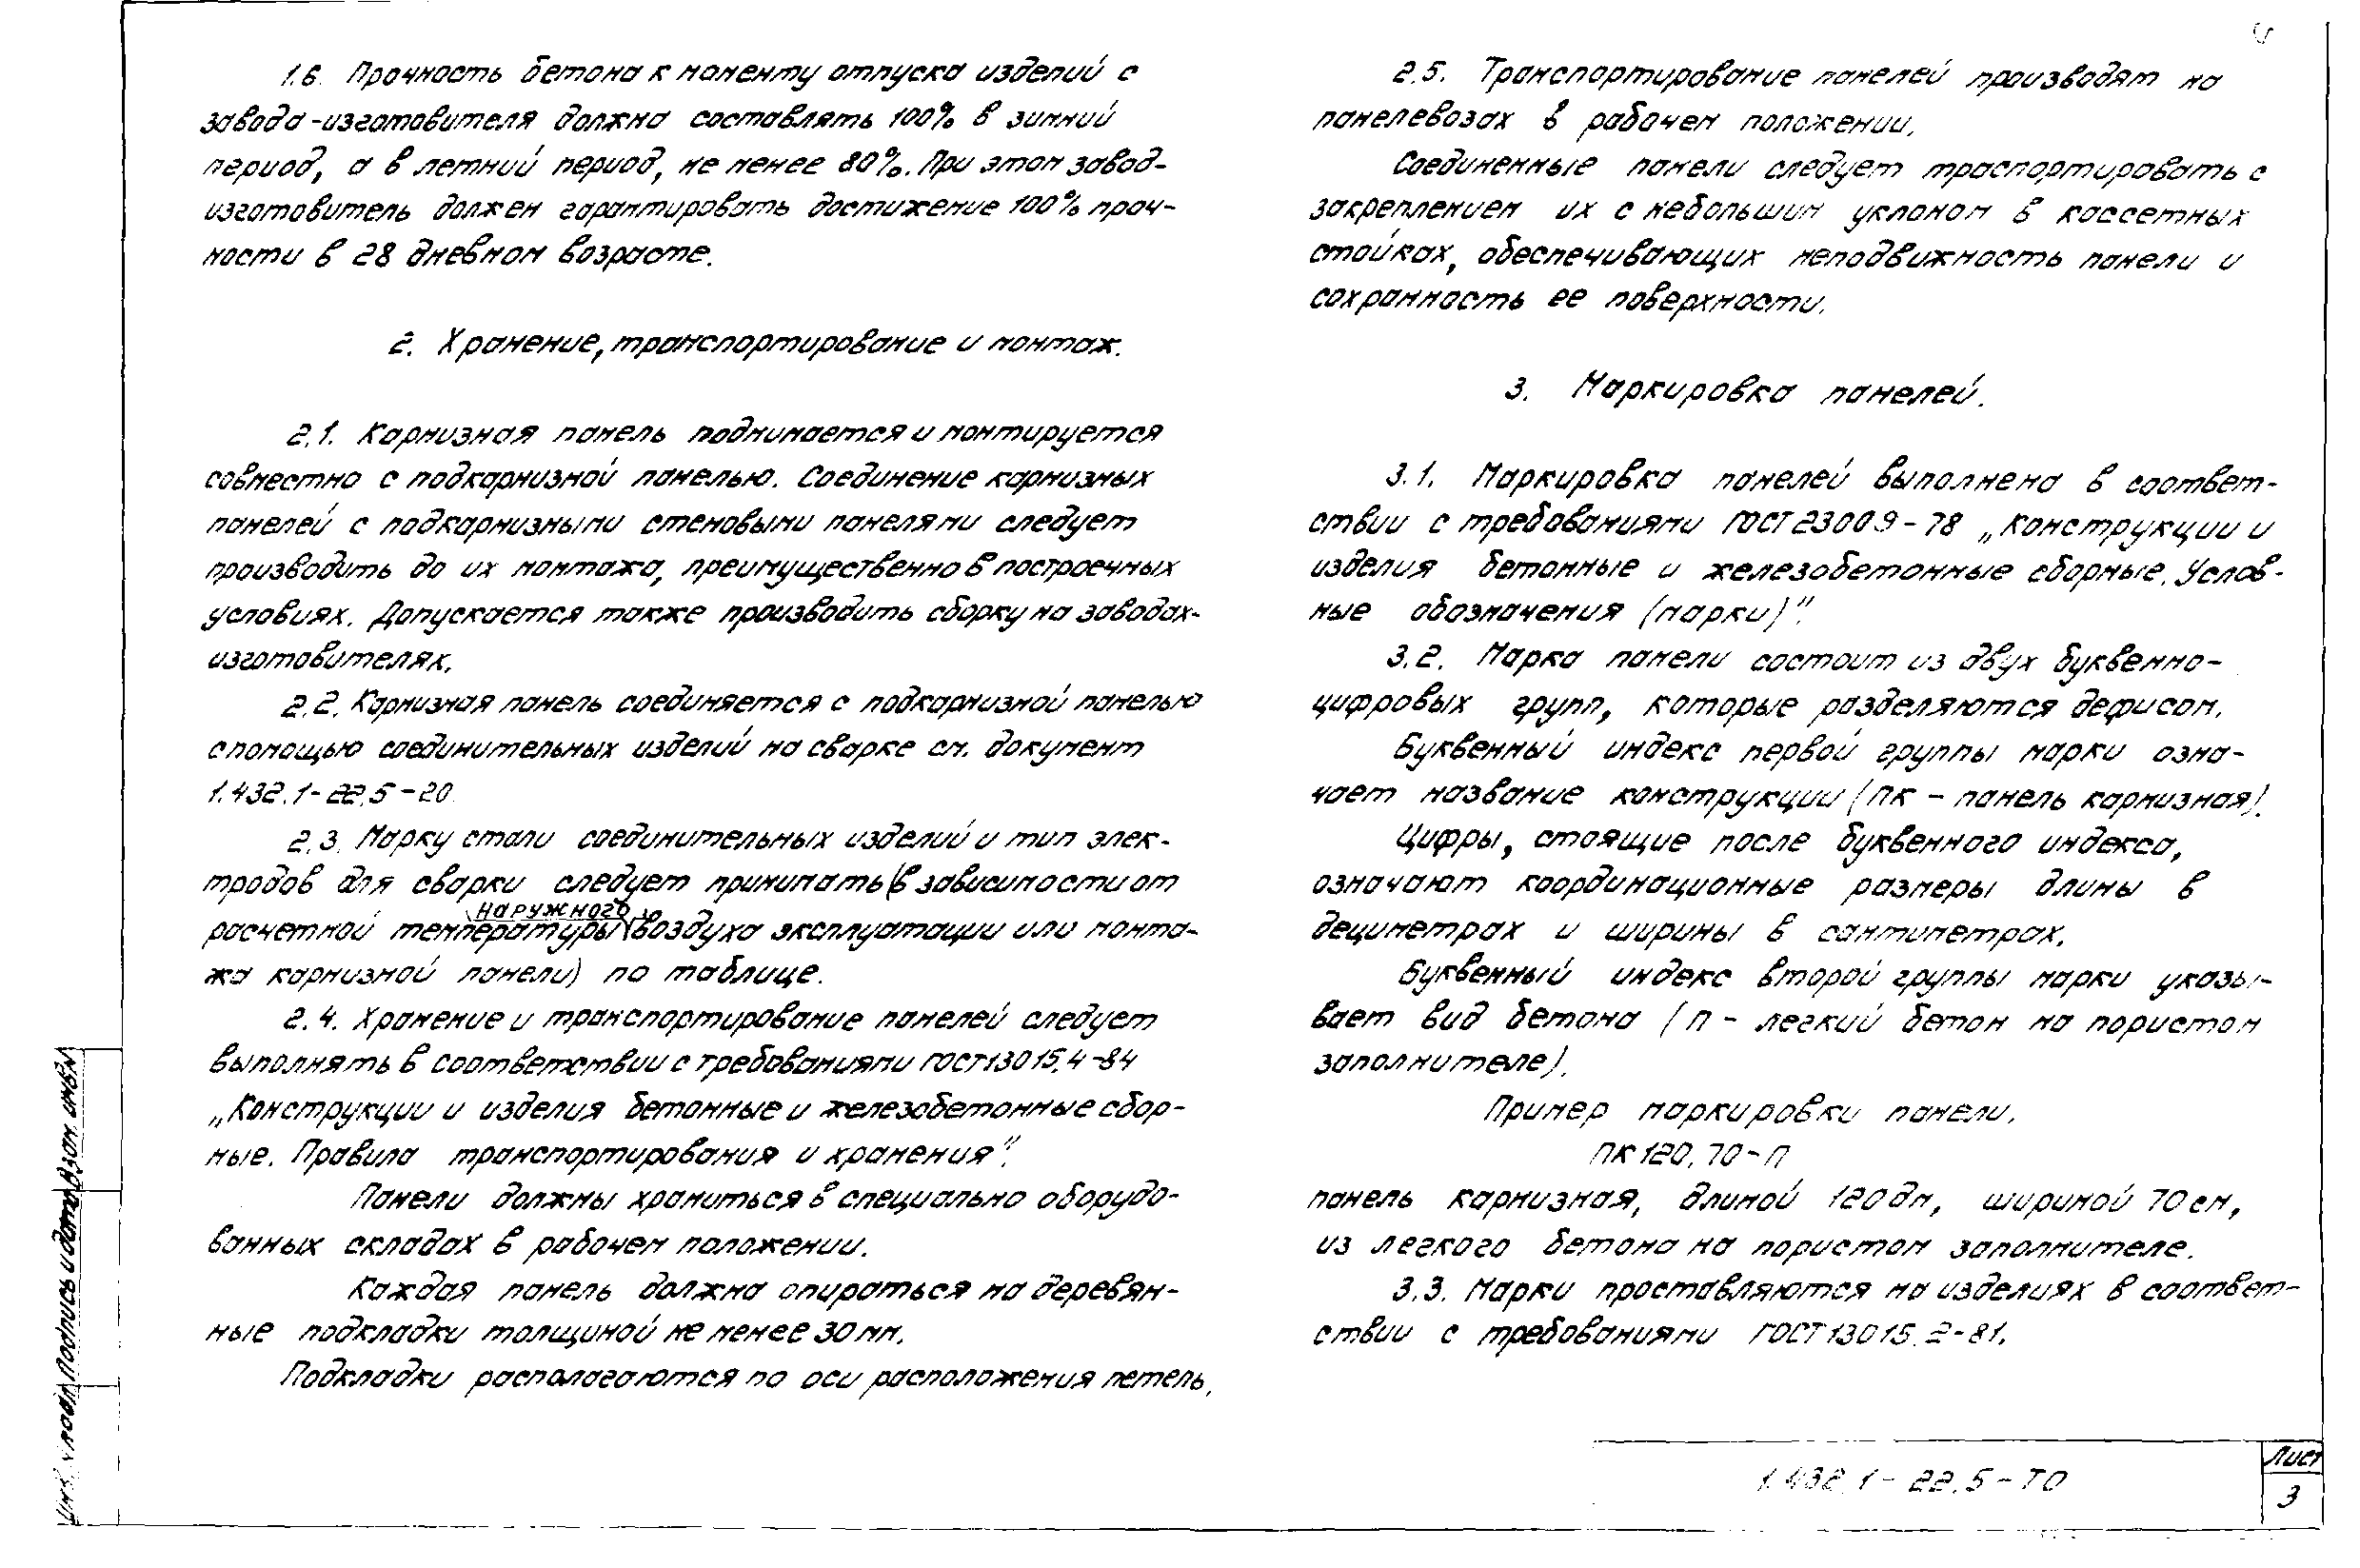 1.6. Прочность бетона к моменту отпуска изделий с
завода-изготовителя должна составлять 100% в зимний
период, а в летний период, не менее 80%. При этом завод-
изготовитель должен гарантировать достижение 100% проч-
ности в 28 дневном возрасте.
2. Хранение, транспортирование и монтаж.
2.1. Карнизная панель поднимается и монтируется
совместно с подкарнизной панелью. Соединение карнизных
панелей с подкарнизными стеновыми панелями следует
производить до их монтажа, преимущественно в построечных
условиях. Допускается также производить сборку на заводах-
изготовителях.
2.2. Карнизная панель соединяется с подкарнизной панелью
с помощью соединительных изделий на сварке см. документ
1.432.1-22.5-20.
2.3. Марку стали соединительных изделий и тип элек-
тродов для сварки следует принимать (в зависимости от
расчетной температуры наружного воздуха эксплуатации или монта-
жа карнизной панели) по таблице.
2.4. Хранение и транспортирование панелей следует
выполнять в соответствии с требованиями ГОСТ 13015.4-84
„Конструкции и изделия бетонные и железобетонные сбор-
ные. Правила транспортирования и хранения".
Панели должны храниться в специально оборудо-
ванных складах в рабочем положении.
Каждая панель должна опираться на деревян-
ные подкладки толщиной не менее 30 мм.
Подкладки располагаются по оси расположения петель.
2.5. Транспортирование панелей производят на
панелевозах в рабочем положении.
Соединенные панели следует траспортировать с
закреплением их с небольшим уклоном в кассетных
стойках, обеспечивающих неподвижность панели и
сохранность ее поверхности.
3. Маркировка панелей.
3.1. Маркировка панелей выполнена в соответ-
ствии с требованиями ГОСТ 23009-78 „Конструкции и
изделия бетонные и железобетонные сборные. Услов-
ные обозначения (марки)".
3.2. Марка панели состоит из двух буквенно-
цифровых групп, которые разделяются дефисом.
Буквенный индекс первой группы марки озна-
чает название конструкции (ПК – панель карнизная).
Цифры, стоящие после буквенного индекса,
означают координационные размеры длины в
дециметрах и ширины в сантиметрах.
Буквенный индекс второй группы марки указы-
вает вид бетона (П – легкий бетон на пористом
заполнителе).
Пример маркировки панели.
ПК 120.70-П
панель карнизная, длиной 120 дм, шириной 70 см,
из легкого бетона на пористом заполнителе.
3.3. Марки проставляются на изделиях в соответ-
ствии с требованиями ГОСТ 13015.2-81.
1.432.1-22.5-ТО
Лист
3
Инв. № подл. Подпись и дата Взам. инв. №